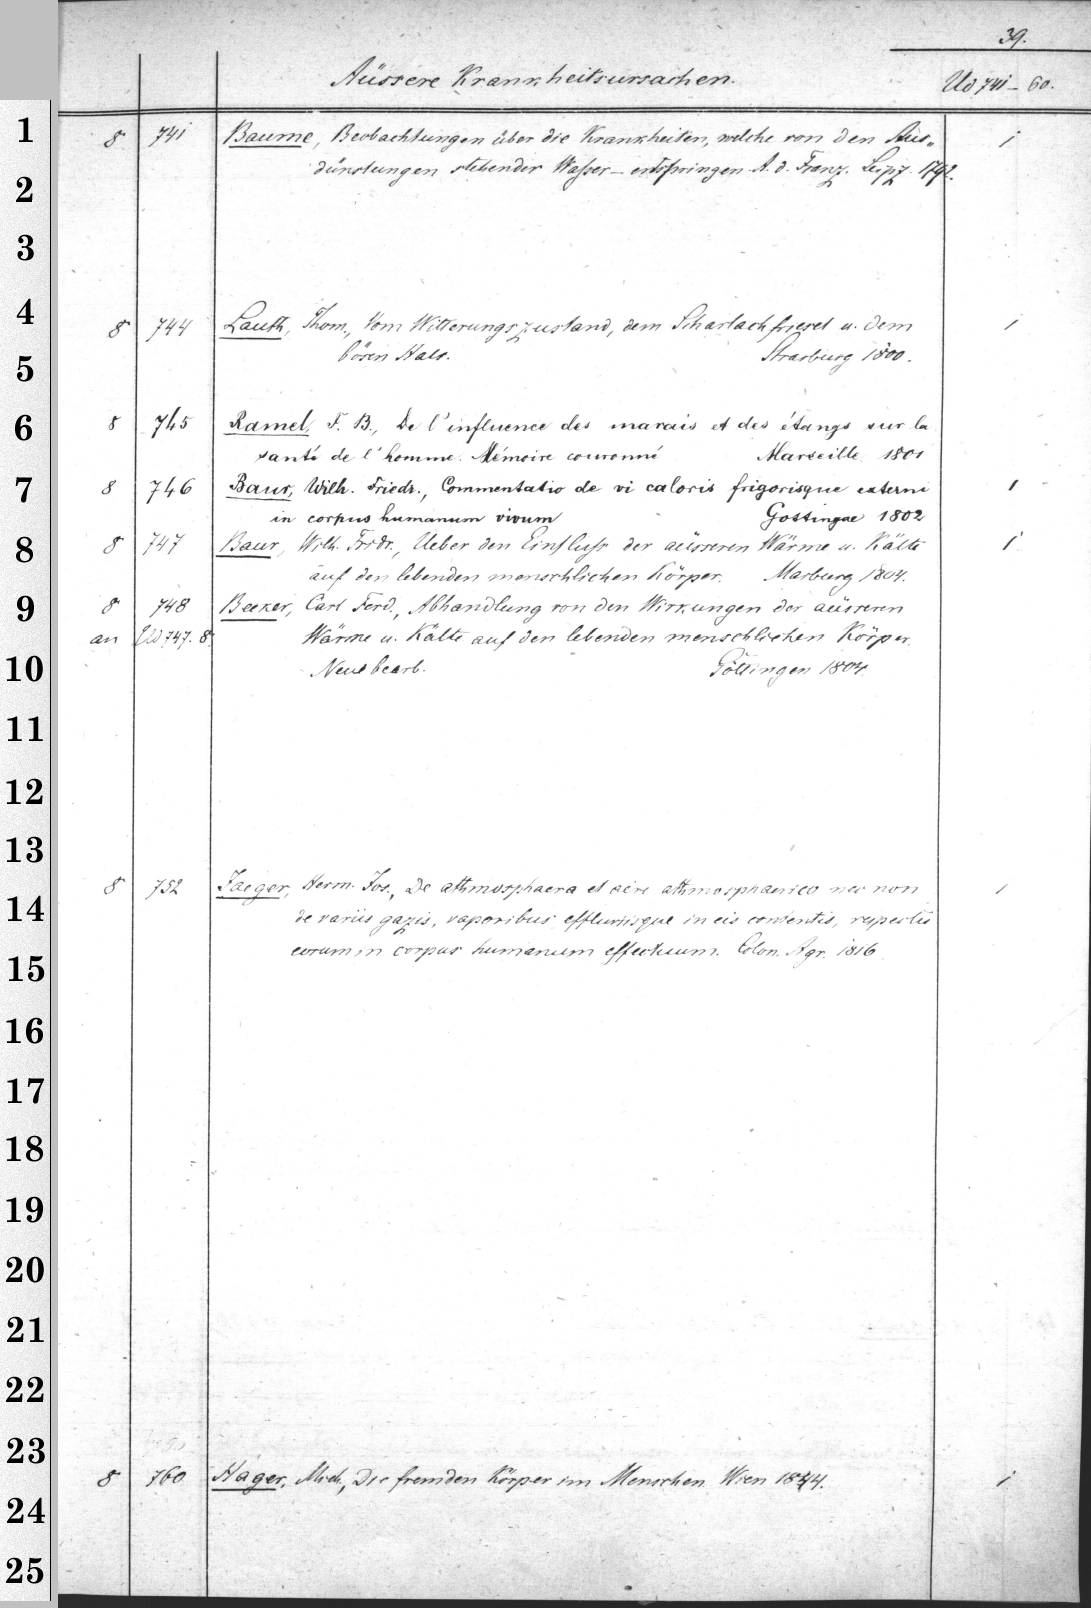 39.
Äussere Krankheitsursachen. Ud 741 - 60.
1
8 741 Baume, Beobachtungen über die Krankheiten, welche von den Aus- 1
dünstungen stehender Wasser - entspringen. A. d. Franz. Leipz. 1792.
2
3
4
8 744 Lauth, Thom., Vom Witterungszustand, dem Scharlachfriesel u. dem 1
bösen Hals. Strasburg 1800.
5
6 8 745 Ramel, F. B., De l'influence des marais et des étangs sur la
santé de l'homme. Mémoire couronné Marseille 1801
7 8 746 Baur, Wilh. Friedr., Commentatio de vi caloris frigorisque externi 1
in corpus humanum vivum Gottingae 1802
8 8 747 Baur, Wilh. Frdr., Ueber den Einfluss der äusseren Wärme u. Kälte 1
auf den lebenden menschlichen Körper. Marburg 1804.
9 8 748 Becker, Carl Ferd., Abhandlung von den Wirkungen der äusseren
an Ud 747. 8. Wärme u. Kälte auf den lebenden menschlichen Körper.
10 Neue bearb. Göttingen 1804.
11
12
13
8 752 Jaeger, Herm. Jos., De athmosphaera et aëre athmosphaerico nec non 1
14 de variis gazis, vaporibus effluviisque in eis contentis, respectu
eorum in corpus humanum effectuum. Colon. Agr. 1816
15
16
17
18
19
20
21
22
23
8 760 Hager, Mich., Die fremden Körper im Menschen. Wien 1844. 1
24
25